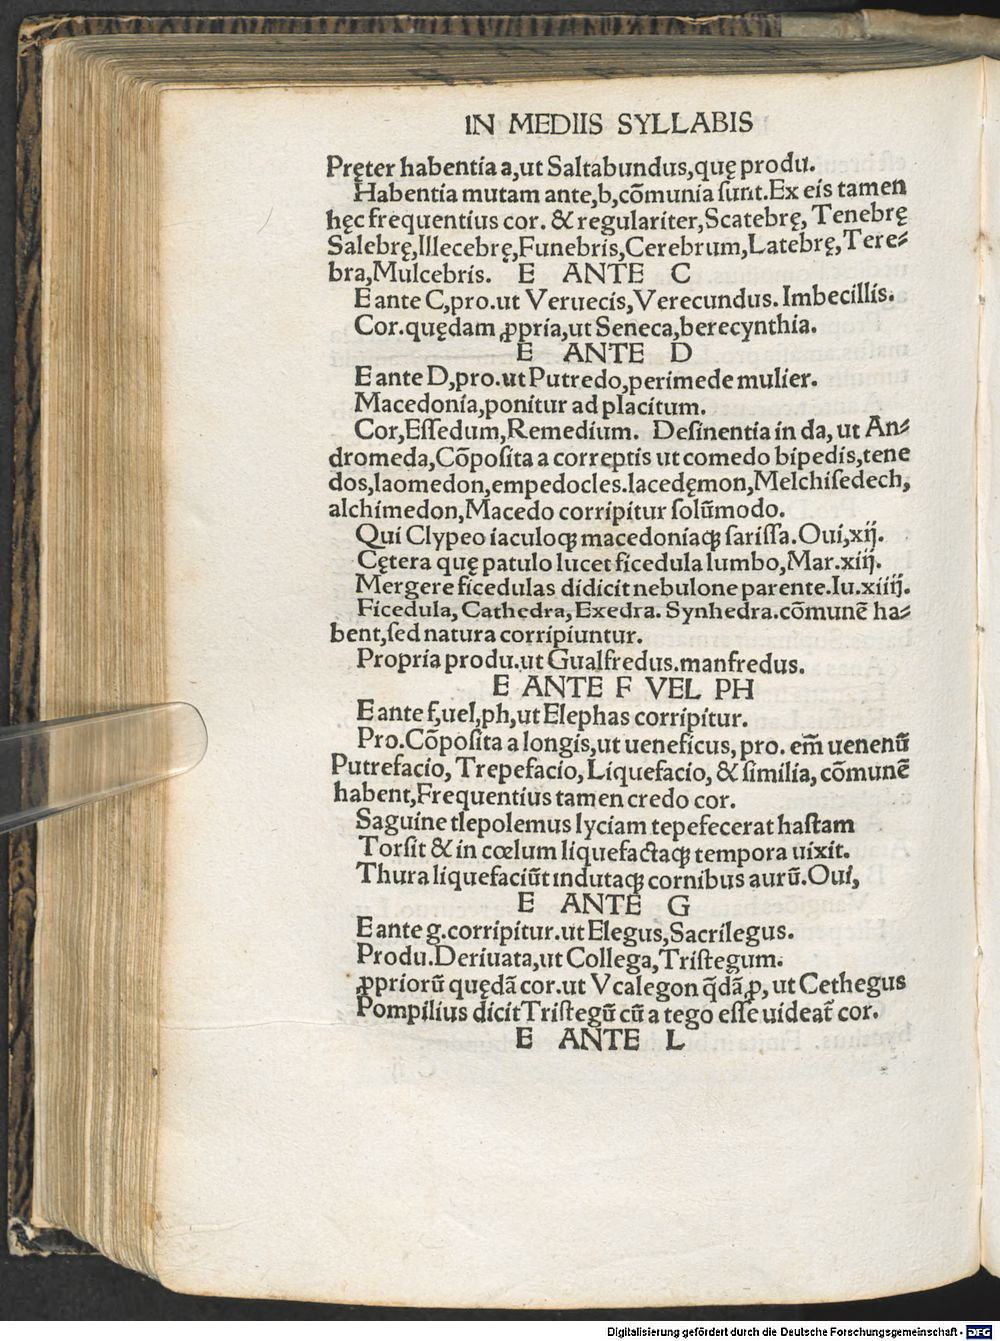 IN MEDIIS SYLLABIS
Pręter habentia a,ut Saltabundus,quę produ.
Habentia mutam ante,b,cōmunia ſunt.Ex eis tamen
hęc frequentius cor. & regulariter,Scatebrę, Tenebrę
Salebrę,Illecebrę,Funebris,Cerebrum,Latebrę,Tere⸗
bra,Mulcebris. E ANTE C
E ante C,pro.ut Veruecis,Verecundus. Imbecillis.
Cor.quędam ꝓpria,ut Seneca,berecynthia.
E ANTE D
E ante D,pro.ut Putredo,perimede mulier.
Macedonia,ponitur ad placitum.
Cor,Eſſedum,Remedium. Deſinentia in da, ut An⸗
dromeda,Cōpoſita a correptis ut comedo bipedis,tene
dos,laomedon,empedocles.lacedęmon,Melchiſedech,
alchimedon,Macedo corripitur ſolūmodo.
Qui Clypeo iaculoqꝫ macedoniaqꝫ ſariſſa.Oui,xij.
Cętera quę patulo lucet ficedula lumbo,Mar.xiij.
Mergere ficedulas didicit nebulone parente.Iu.xiiij.
Ficedula, Cathedra, Exedra. Synhedra.cōmunē ha⸗
bent,ſed natura corripiuntur.
Propria produ.ut Gualfredus.manfredus.
E ANTE F VEL PH
E ante f,uel,ph,ut Elephas corripitur.
Pro.Cōpoſita a longis,ut ueneficus, pro. em̄ uenenū
Putrefacio, Trepefacio, Liquefacio, & ſimilia, cōmunē
habent,Frequentius tamen credo cor.
Saguine tlepolemus lyciam tepefecerat haſtam
Torſit & in cœlum liquefactaqꝫ tempora uixit.
Thura liquefaciūt indutaqꝫ cornibus aurū.Oui,
E ANTE G
E ante g.corripitur.ut Elegus,Sacrilegus.
Produ.Deriuata,ut Collega,Triſtegum.
ꝓpriorū quędā cor.ut Vcalegon q̄dā ꝓ, ut Cethegus
Pompilius dicit Triſtegū cū a tego eſſe uideat̄ cor.
E ANTE L
Digitalisierung gefördert durch die Deutsche Forschungsgemeinschaft - DFG